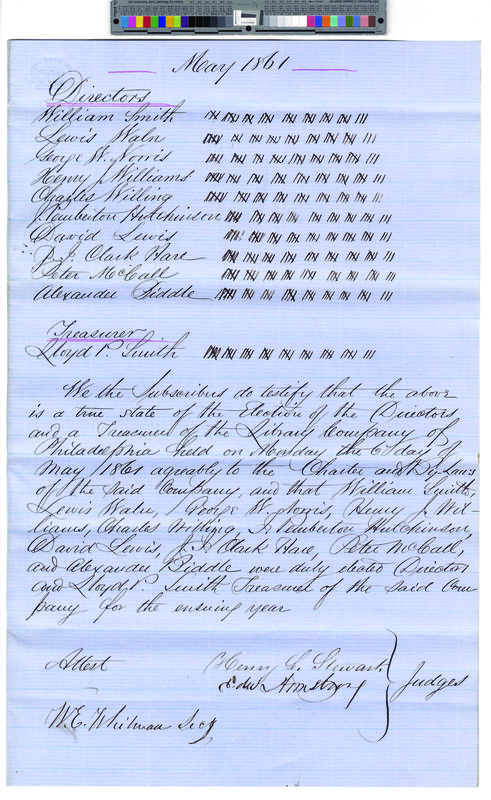 May 1861
Directors
William Smith
Lewis Waln
George W. Norris
Henry J. Williams
Charles Willing
J. Pemberton Hutchinson
David Lewis
J. I. Clark Hare
Peter McCall
Alexander Biddle
Treasurer
Lloyd P. Smith
We the Subscribers do testify that the above
is a true state of the Election of the Directors
and a Treasurer of the Library Company of
Philadelphia held on Monday the 6th day of
May 1861 agreably to the Charter and By Laws
of the said Company, and that William Smith,
Lewis Waln, George W. Norris, Henry J. Wil-
liams, Charles Willing, J. Pemberton Hutchinson,
David Lewis, J. I. Clark Hare, Peter McCall,
and Alexander Biddle were duly elected Directors
and Lloyd P. Smith Treasurer of the said Com
pany for the ensuing year
Attest
Henry C. Stewart
Edw Armstrong
Judges
W. E. Whitman Secy